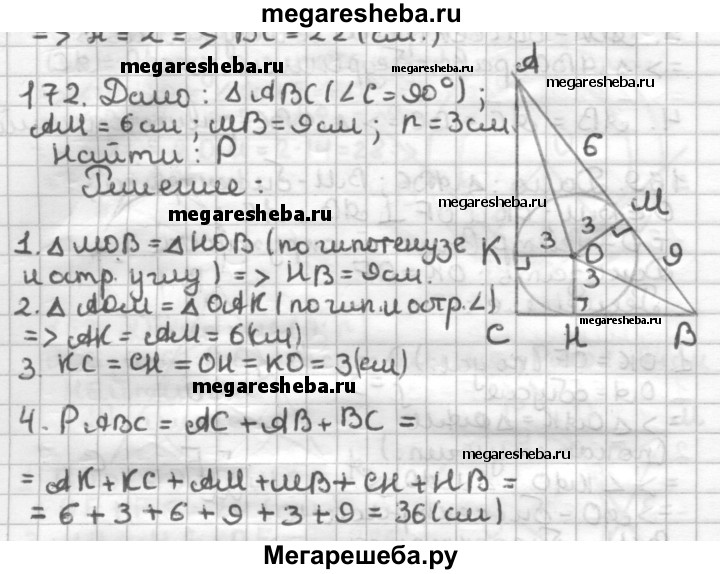 megaresheba.ru
=> x = 2 => BC = 22 (см.)
megaresheba.ru
megaresheba.ru
172. Дано: Δ ABC (∠C = 90°);
AM = 6 см; MB = 9 см; r = 3 см.
Найти: P
Решение:
megaresheba.ru
megaresheba.ru
1. Δ MOB = Δ HOB (по гипотенузе
и остр. углу) => HB = 9 см.
2. Δ AOM = Δ OAK (по гип. и остр. ∠)
=> AK = AM = 6 (см)
3. KC = CH = OH = KO = 3 (см)
megaresheba.ru
4. P ABC = AC + AB + BC =
megaresheba.ru
= AK + KC + AM + MB + CH + HB =
= 6 + 3 + 6 + 9 + 3 + 9 = 36 (см)
A
6
M
3
K 3 O 9
3
megaresheba.ru
C H B
Мегарешеба.ру